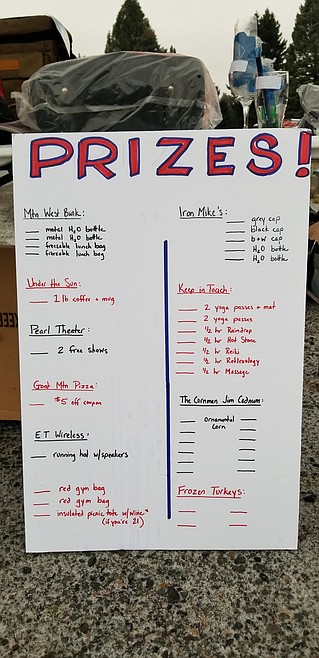 PRIZES!
Mtn West Bank:
metal H₂O bottle
metal H₂O bottle
freezable lunch bag
freezable lunch bag
Under the Sun:
1 lb coffee + mug
Pearl Theater:
2 free shows
Goat Mtn Pizza:
$5 off coupon
E.T. Wireless:
running hat w/speakers
red gym bag
red gym bag
insulated picnic tote w/wine*
(if you're 21)
Iron Mike's:
grey cap
black cap
b+w cap
H₂O bottle
H₂O bottle
Keep in Touch:
2 yoga passes + mat
2 yoga passes
½ hr Raindrop
½ hr Hot Stone
½ hr Reiki
½ hr Reflexology
½ hr Massage
The Cornmen Jim Cadnum:
ornamental
corn
Frozen Turkeys: